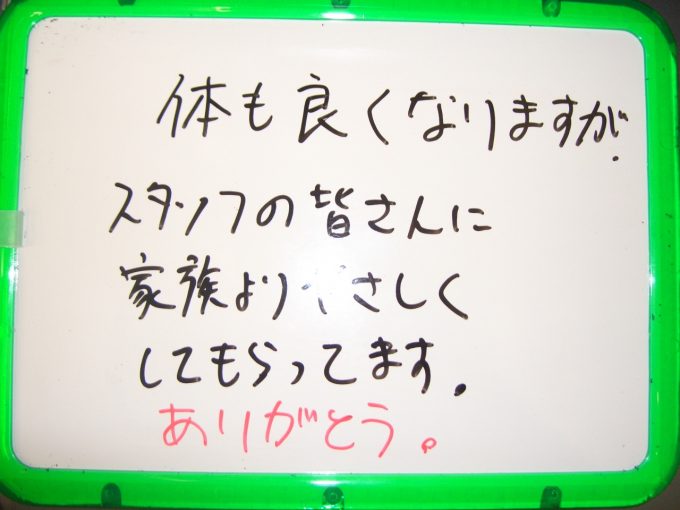 体も良くなりますが、
スタッフの皆さんに
家族よりやさしく
してもらってます。
ありがとう。